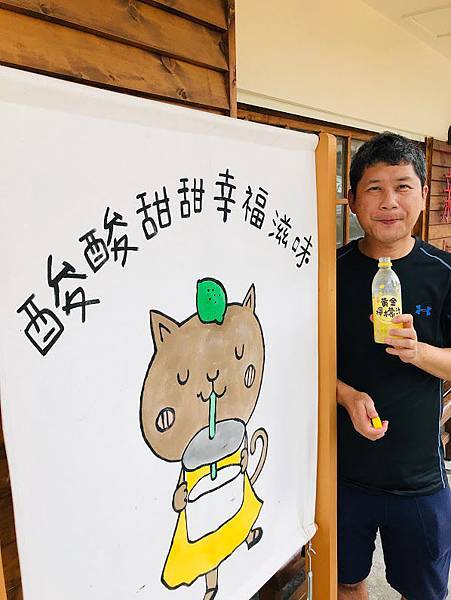 酸酸甜甜幸福滋味
黃金
檸檬汁